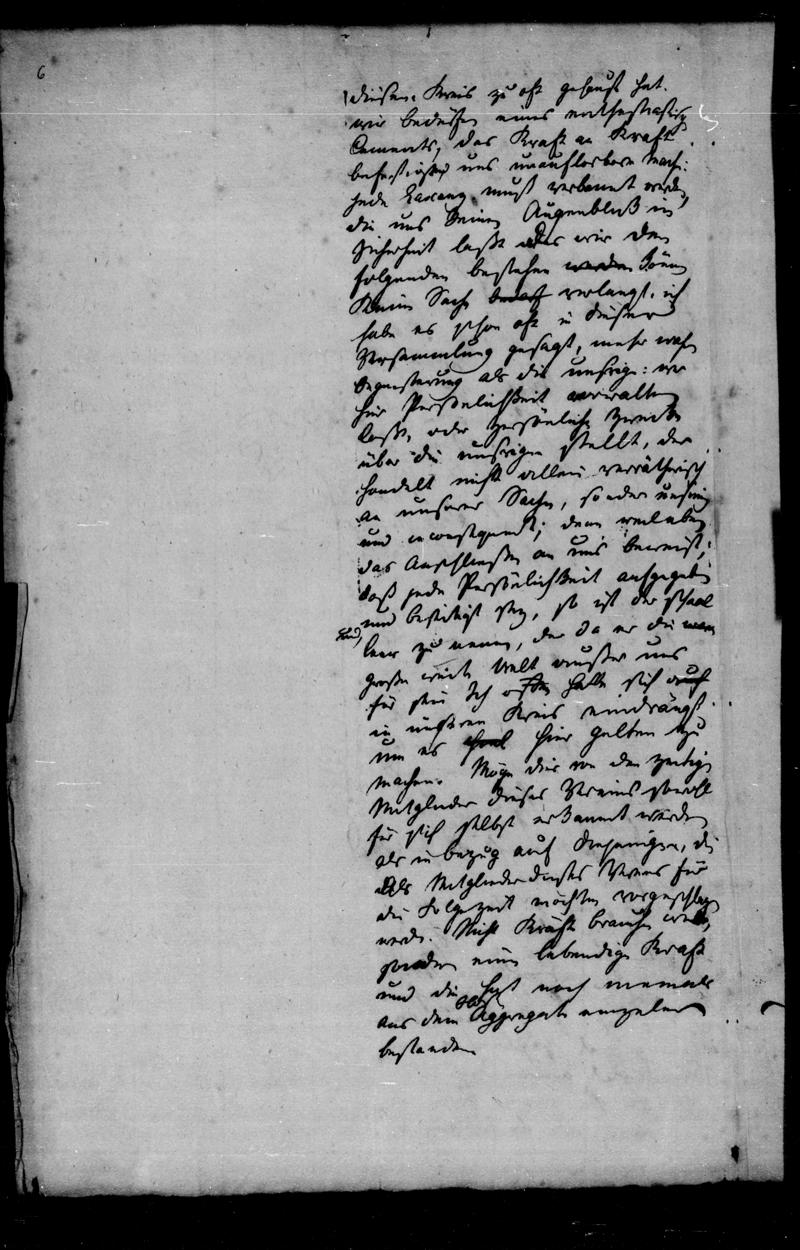 6
diesen Kreis zu oft gehaust hat.
wir bedürfen eines enthusiastisch
Cements, das Kraft an Kraft
befestigt uns unauflösbar mach:
jede muß verbannt werden,
die uns keinen Augenblick in
Sicherheit läßt daß wir den
folgenden bestehen werden können
Keine Sache bedarf verlangt, ich
habe es schon oft in dieser
Versammlung gesagt, mehr
Begeisterung als die unsrige: wer
hier Persönlichkeit vorwalten
läßt, oder persönliche Zwecke
über die unsrigen stellt, der
handelt nicht allein verrätherisch
an unserer Sache, sondern unsinnig
und inconsequent; denn
das Anschließen an uns beweist,
daß jede Persönlichkeit aufgegeben
und beseitigt sey, so ist der schaal
und,
leer zu nennen, der da er die
große weite Welt außer uns
für sein Ich offen hatte sich auf
in unseren Kreis eindrängt
um es hier gelten zu
machen. Möge dies von den zeitigen
Mitgliedern dieses Vereins sowohl
für sich selbst erkannt werden
als in bezug auf diejenigen, die
als Mitglieder dieses Vereins für
die Folgezeit möchten vorgeschlagen
werden. Nicht Kräfte brauchen wir,
sondern eine lebendige Kraft
und die hat noch niemals
aus dem Aggregate einzelner
bestanden